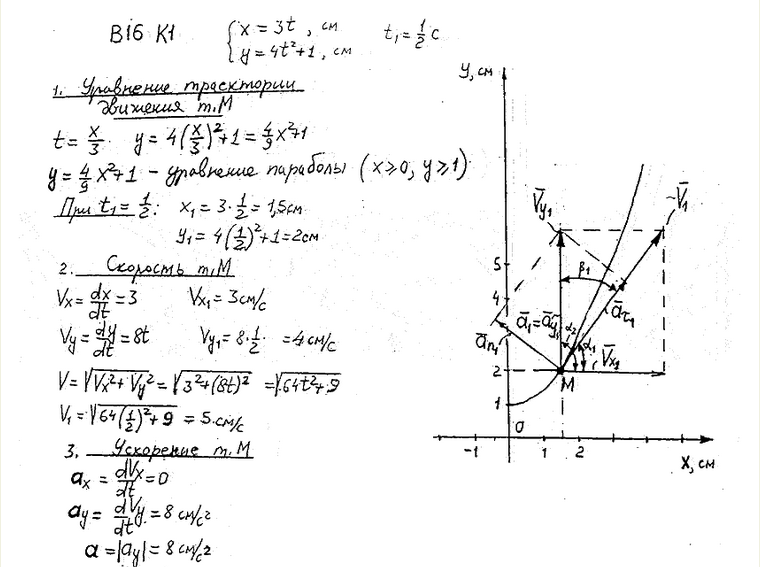 В16 К1
{ x = 3t , см
y = 4t²+1 , см
t₁ = 1/2 с
1. Уравнение траектории
движения т.М
t = x/3 y = 4(x/3)²+1 = 4/9 x²+1
y = 4/9 x²+1 – уравнение параболы (x ⩾ 0, y ⩾ 1)
При t₁ = 1/2: x₁ = 3·1/2 = 1,5см
y₁ = 4(1/2)²+1 = 2см
2. Скорость т.М
Vx = dx/dt = 3 Vx₁ = 3см/с
Vy = dy/dt = 8t Vy₁ = 8·1/2 = 4см/с
V = √Vx²+Vy² = √3²+(8t)² = √64t²+9
V₁ = √64(1/2)²+9 = 5.см/с
3. Ускорение т.М
ax = dVx/dt = 0
ay = dVy/dt = 8 см/с²
a = |ay| = 8 см/с²
y, см
V̄y₁
V̄₁
5
β₁
4
ā₁=āy₁
āτ₁
ān₁
α₂
α₁
V̄x₁
2
M
1
0
-1 1 2
x, см